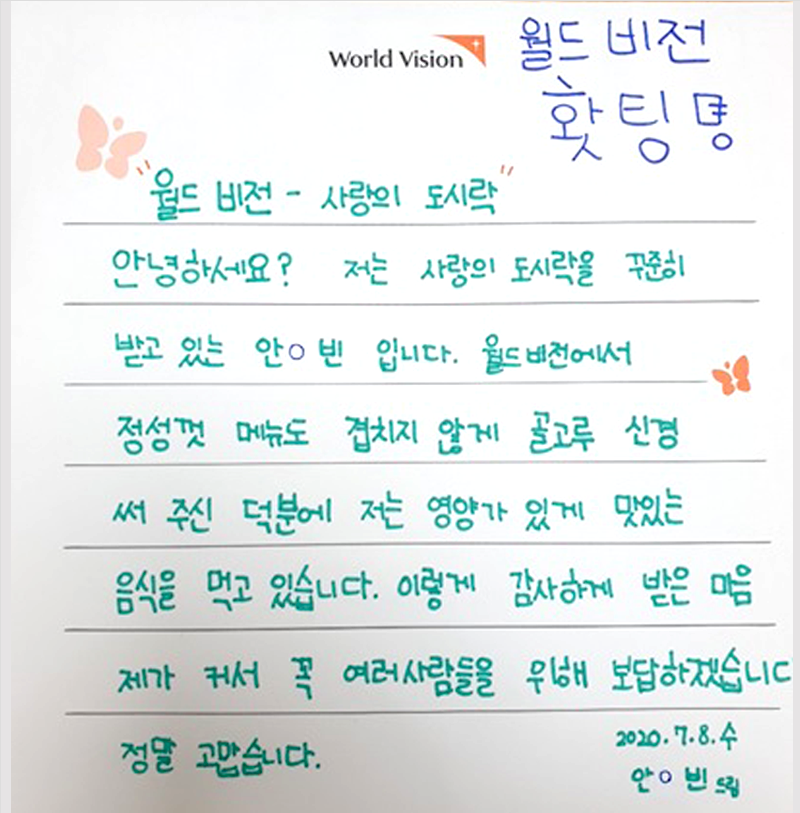 World Vision
월드 비전
홧팅명
"월드 비전 - 사랑의 도시락"
안녕하세요? 저는 사랑의 도시락을 꾸준히
받고 있는 안○빈 입니다. 월드비전에서
정성껏 메뉴도 겹치지 않게 골고루 신경
써 주신 덕분에 저는 영양가 있게 맛있는
음식을 먹고 있습니다. 이렇게 감사하게 받은 마음
제가 커서 꼭 여러사람들을 위해 보답하겠습니다
정말 고맙습니다.
2020.7.8.수
안○빈 드림